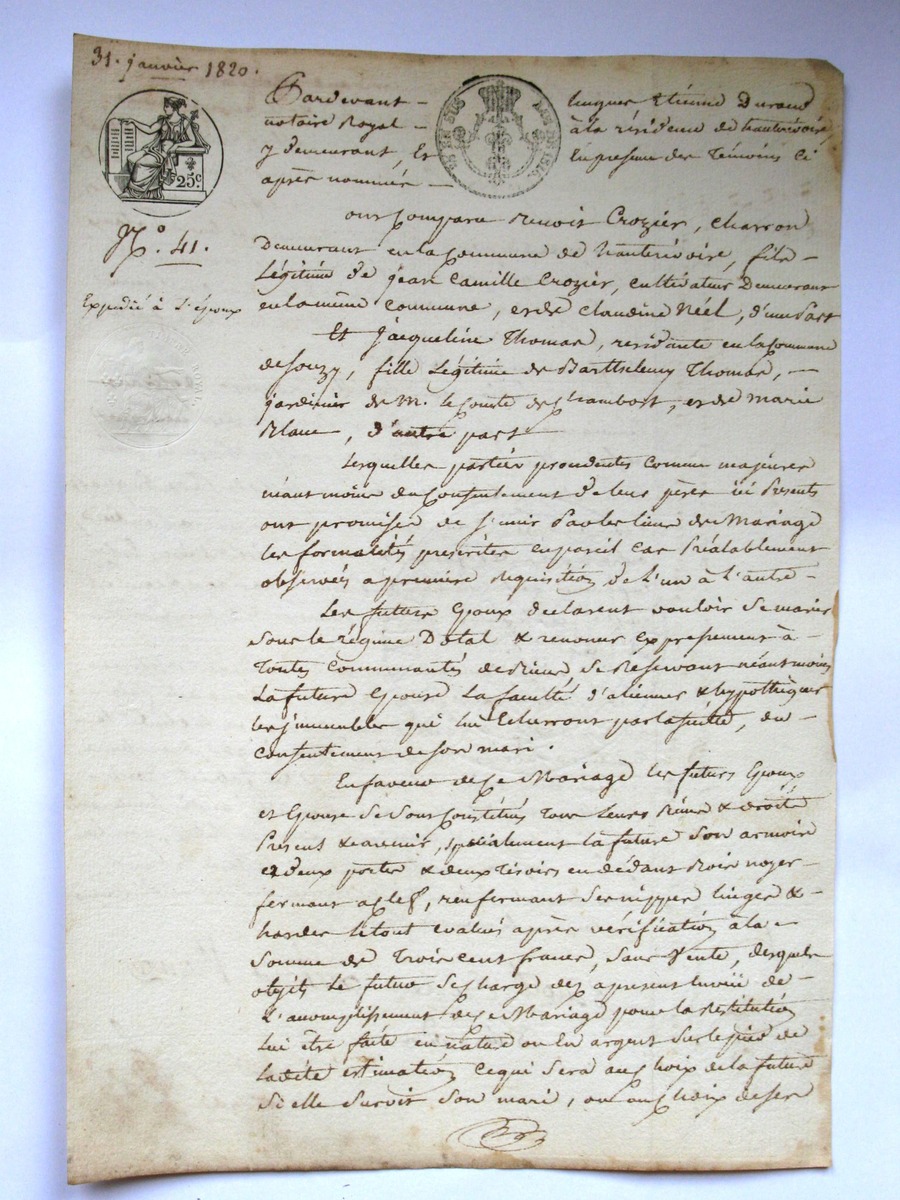 31. janvier 1820.
Pardevant - Jacques Etienne Durand
notaire Royal - à la résidence de hauterivoire,
y demeurant, Et En presence des Témoins ci
après nommés -
25c.
EN SUS
N.° 41.
Expédié à l'époux
ont Comparu Benoit Crozier, Charron
Demeurant en la Commune de hauterivoire, fils -
Légitime de jean Camille Crozier, cultivateur Demeurant
en la même commune, et de Claudine Néel, d'une Part
Et Jacqueline Thomas, residante en la Commune
de Souzy, fille Légitime de Barthelemy Thomas, -
jardinier de M. le Comte de Chambost, et de Marie
Blanc, d'autre part
Lesquelles parties procedentes comme majeures
néant moins du Consentement de leurs pères ici Presents
ont promises de s'unir Par les liens du Mariage
les formalités prescrites en pareil cas Préalablement
observées a première requisition de l'un à l'autre -
Les futurs Epoux declarent vouloir se marier
sous le régime Dotal & renoncer expressement à -
toutes communautés de Biens se Reservant néantmoins
La future Epouse La faculté d'aliener & hypothéquer
les jmmeubles qui lui Echerront par la suite, du -
consentement de son mari.
En faveur de ce Mariage les futurs Epoux
et Epouse se sont Constitués tous Leurs Biens & droits
Présent & avenir, spécialement la future son armoire
à deux portes & deux Tiroirs en dedant Bois noyer
fermant a clef, renfermant ses nippes linges & -
hardes le tout evalués après vérification à la -
somme de Trois cent francs, sans Vente, desquels
objets le futur se charge dez apresent
L'accomplissement de ce Mariage pour la Restitution
Lui être faite en nature ou En argent sur le pied de
Ladite estimation ce qui sera au choix de la future
Si elle survit son mari, ou au choix de ses